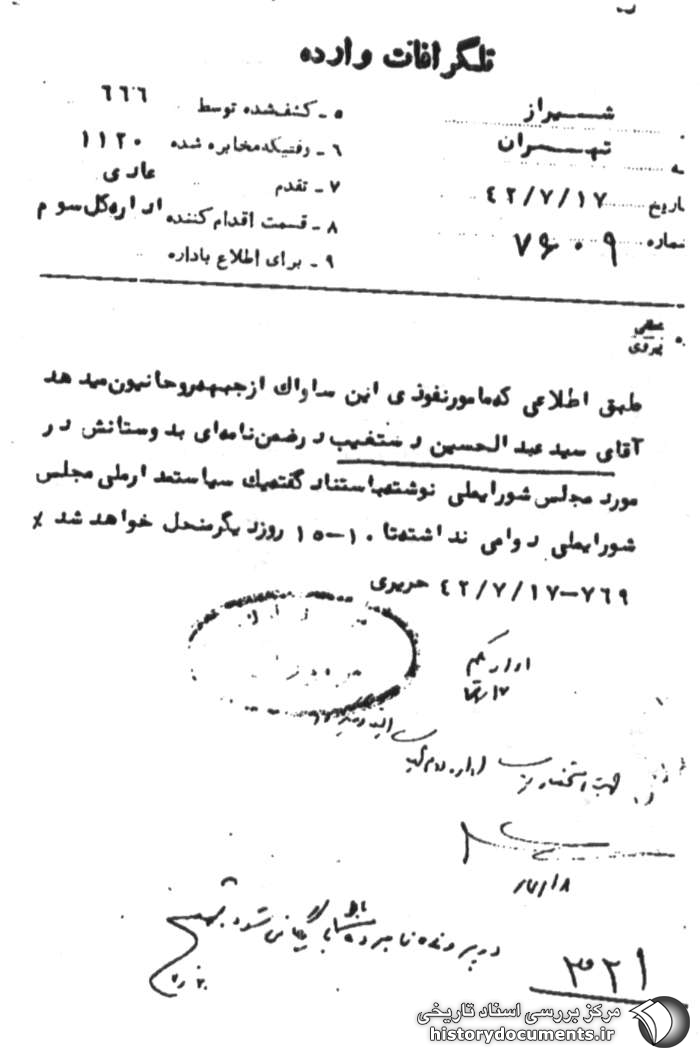 تلگرافات وارده
شـــیراز
۵ ـ کشف‌شده توسط ۶۶۶
تهـــران
۶ ـ وقتیکه مخابره شده ۱۱۲۰
تاریخ ۴۲/۷/۱۷
۷ ـ تقدم عادی
شماره ۷۶۰۹
۸ ـ قسمت اقدام کننده اداره‌کل سوم
۹ ـ برای اطلاع باداره
طبق اطلاعی که‌مامورنفوذی این ساواک ازجبهه‌روحانیون‌میدهد
آقای سیدعبدالحسین دستغیب درضمن‌نامه‌ای بدوستانش در
مورد مجلس شورایملی نوشته‌باستناد گفته‌یک سیاستمدارملی مجلس
شورایملی دوامی نداشته‌تا ۱۰-۱۵ روزدیگرمنحل خواهدشد ٪
۷۶۹-۴۲/۷/۱۷ حریری
اداره یکم
جهت استحضار ریاست اداره دوم
۱۸
در پرونده نامبرده بایگانی شود
۳۲۱
مرکز بررسی اسناد تاریخی
historydocuments.ir